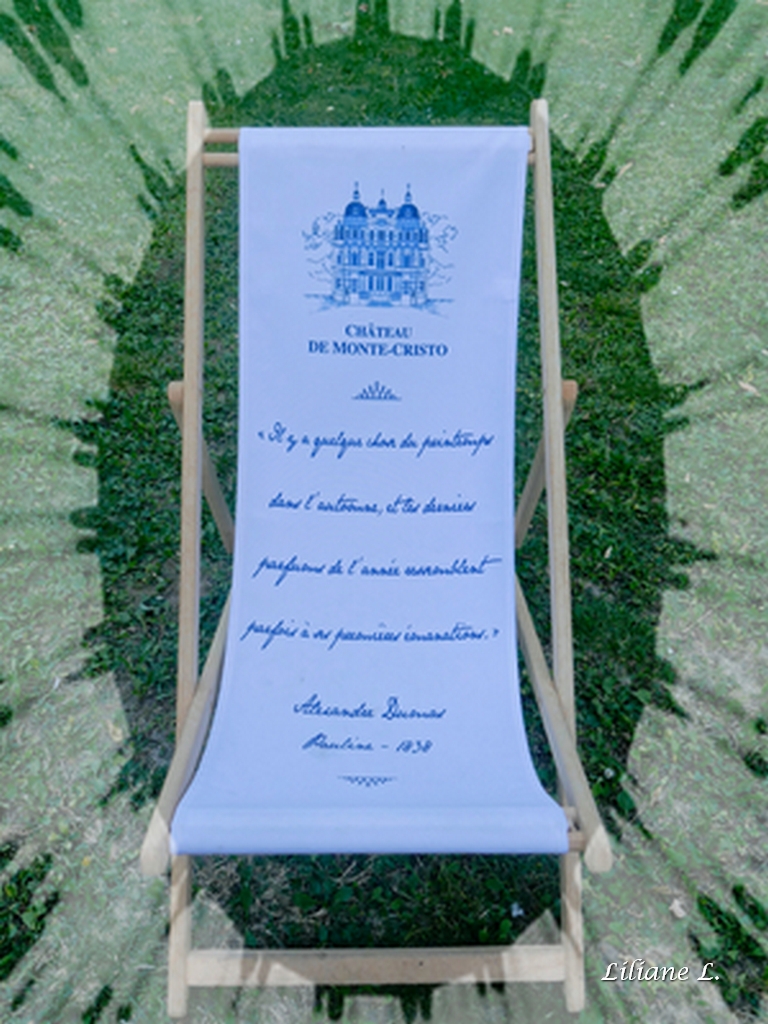 CHÂTEAU
DE MONTE-CRISTO
« Il y a quelque chose du printemps
dans l'automne, et les dernières
parfums de l'année ressemblent
parfois à ses premières émanations. »
Alexandre Dumas
Pauline - 1838
Liliane L.